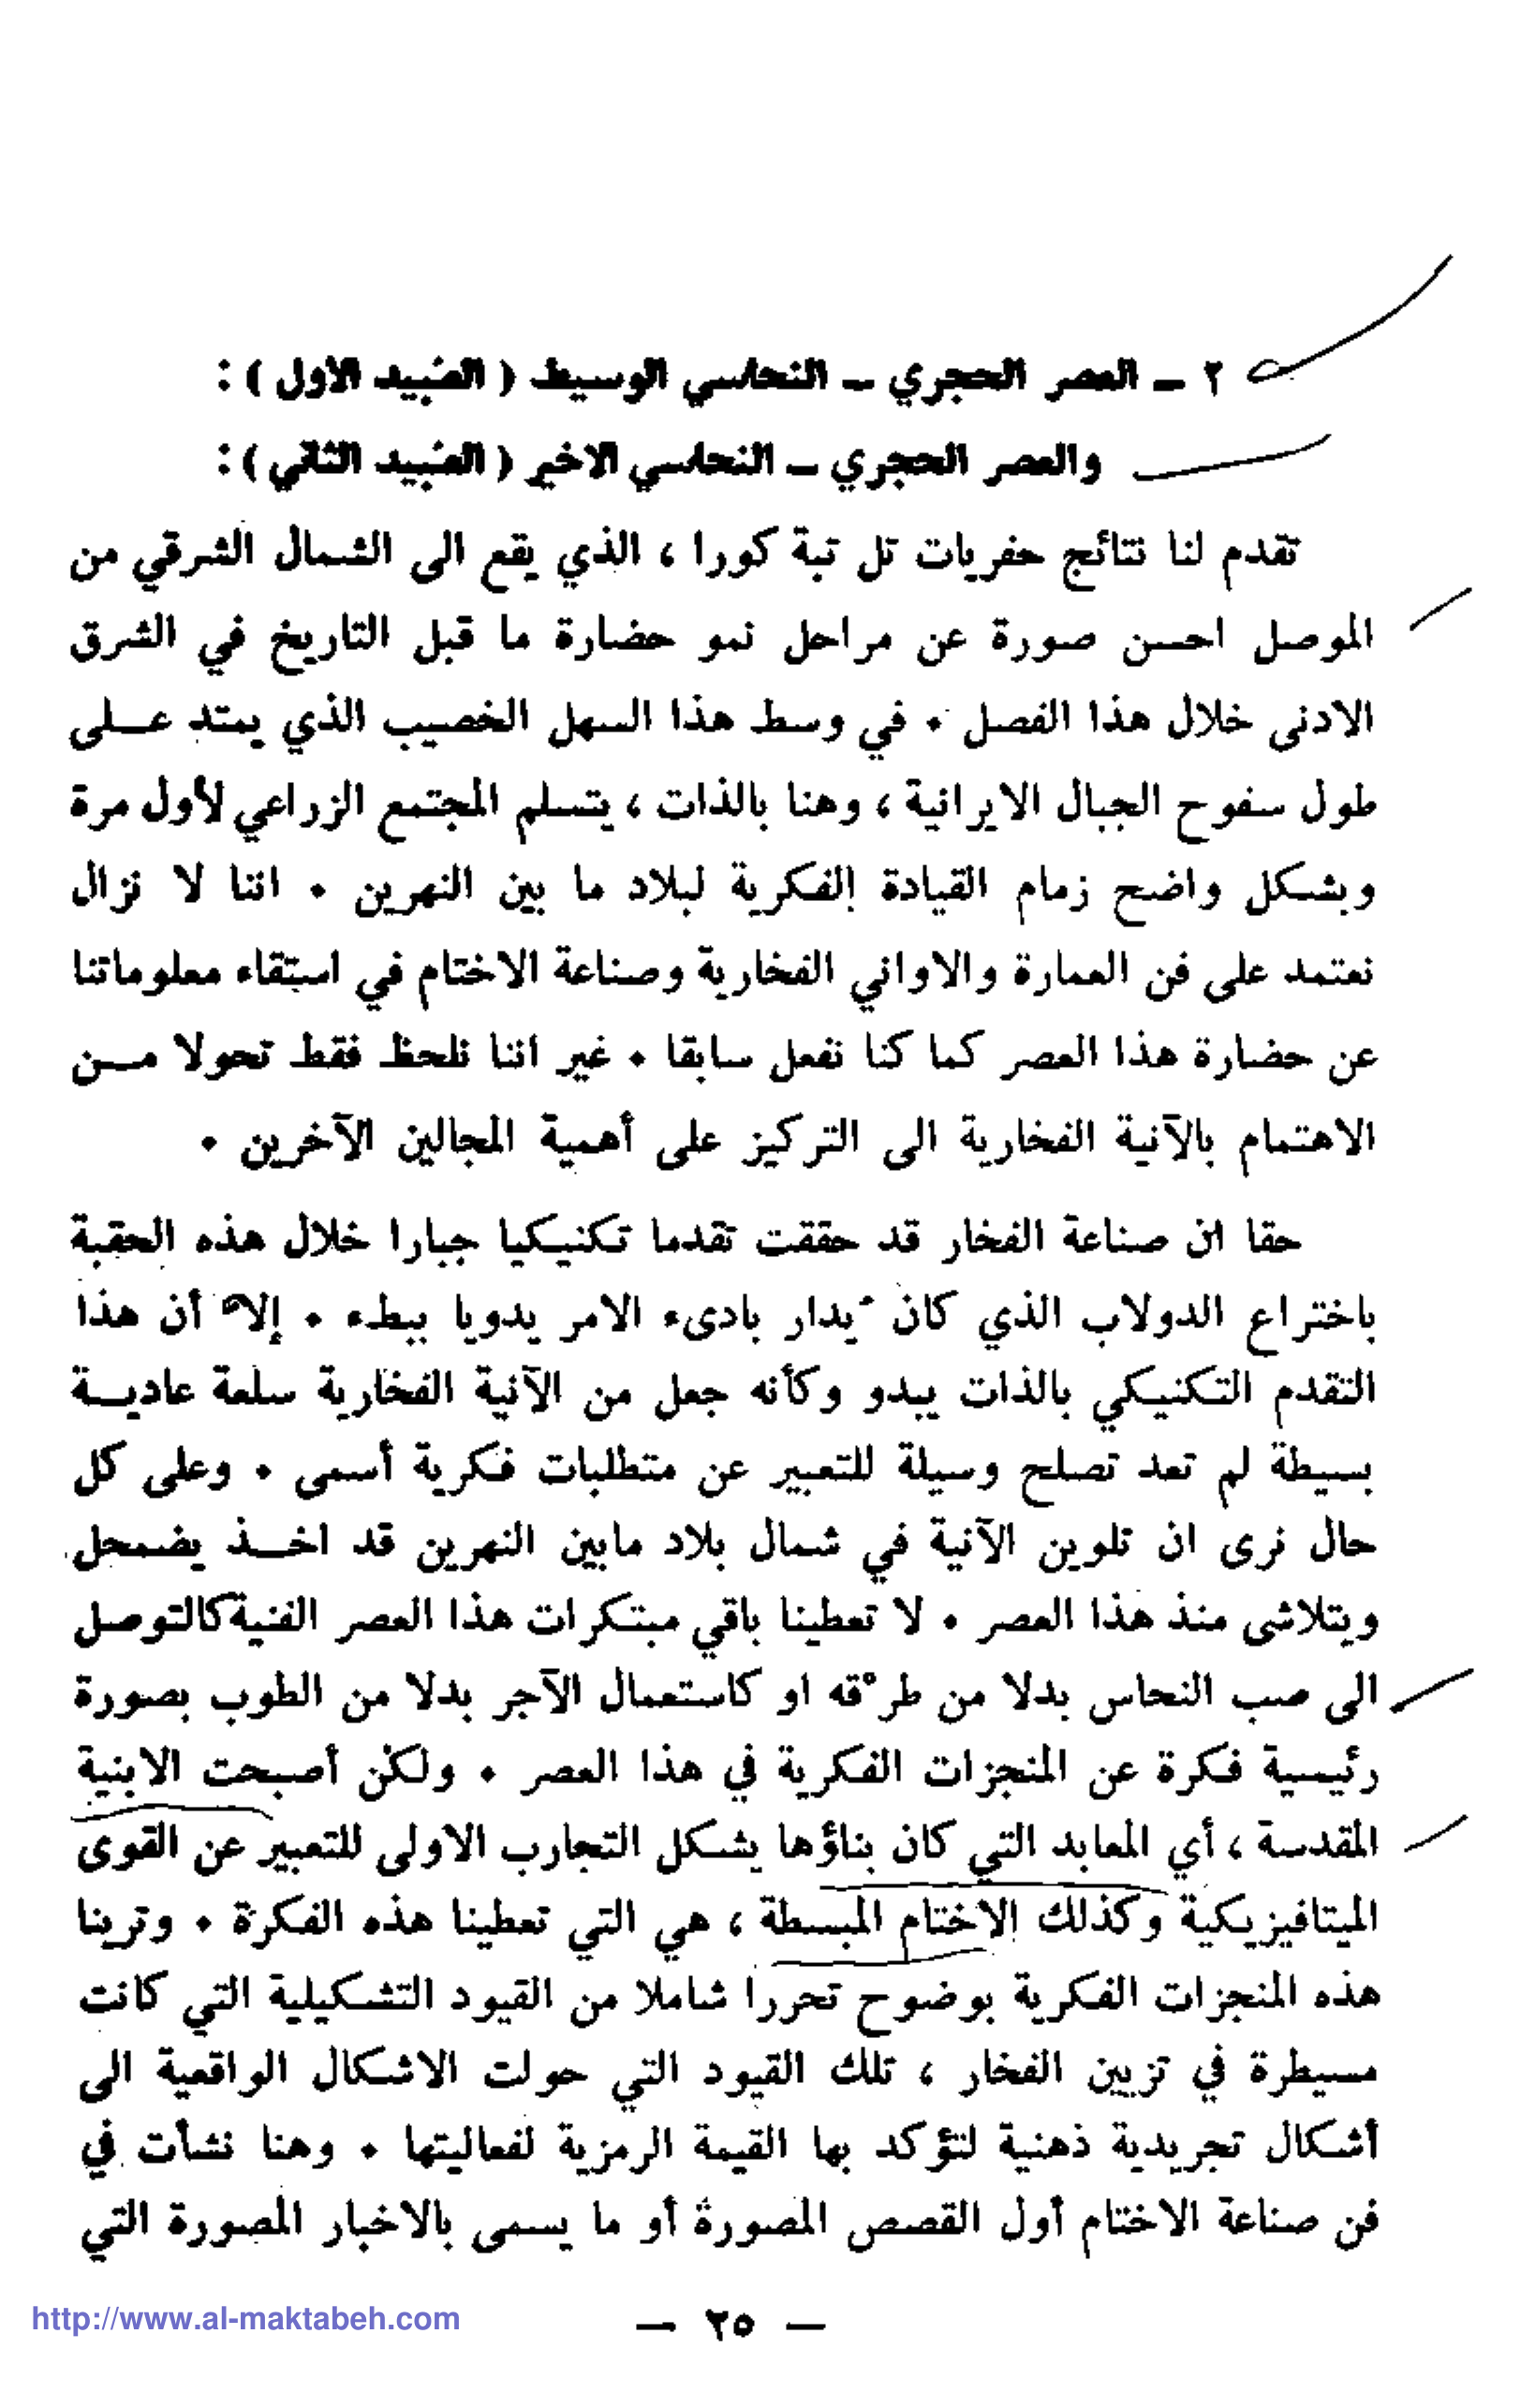 ٢ ـ العصر الحجري ـ النحاسي الوسيط ( العُبيد الاول ) :
والعصر الحجري ـ النحاسي الاخير ( العُبيد الثاني ) :
تقدم لنا نتائج حفريات تل تبة كورا ، الذي يقع الى الشمال الشرقي من
الموصل احسن صورة عن مراحل نمو حضارة ما قبل التاريخ في الشرق
الادنى خلال هذا الفصل • في وسط هذا السهل الخصيب الذي يمتد عـلى
طول سفوح الجبال الايرانية ، وهنا بالذات ، يتسلم المجتمع الزراعي لأول مرة
وبشكل واضح زمام القيادة الفكرية لبلاد ما بين النهرين • اننا لا نزال
نعتمد على فن العمارة والاواني الفخارية وصناعة الاختام في استقاء معلوماتنا
عن حضارة هذا العصر كما كنا نفعل سابقا • غير اننا نلحظ فقط تحولا مـن
الاهتمام بالآنية الفخارية الى التركيز على أهمية المجالين الآخرين •
حقا ان صناعة الفخار قد حققت تقدما تكنيكيا جبارا خلال هذه الحقبة
باختراع الدولاب الذي كان يُدار بادىء الامر يدويا ببطء • إلاّ أن هذا
التقدم التكنيكي بالذات يبدو وكأنه جعل من الآنية الفخارية سلعة عاديـة
بسيطة لم تعد تصلح وسيلة للتعبير عن متطلبات فكرية أسمى • وعلى كل
حال نرى ان تلوين الآنية في شمال بلاد مابين النهرين قد اخـذ يضمحل
ويتلاشى منذ هذا العصر • لا تعطينا باقي مبتكرات هذا العصر الفنية كالتوصل
الى صب النحاس بدلا من طرْقه او كاستعمال الآجر بدلا من الطوب بصورة
رئيسية فكرة عن المنجزات الفكرية في هذا العصر • ولكن أصبحت الابنية
المقدسة ، أي المعابد التي كان بناؤها يشكل التجارب الاولى للتعبير عن القوى
الميتافيزيكية وكذلك الاختام المبسطة ، هي التي تعطينا هذه الفكرة • وترينا
هذه المنجزات الفكرية بوضوح تحررا شاملا من القيود التشكيلية التي كانت
مسيطرة في تزيين الفخار ، تلك القيود التي حولت الاشكال الواقعية الى
أشكال تجريدية ذهنية لتؤكد بها القيمة الرمزية لفعاليتها • وهنا نشأت في
فن صناعة الاختام أول القصص المصورة أو ما يسمى بالاخبار المصورة التي
— ٢٥ —
http://www.al-maktabeh.com